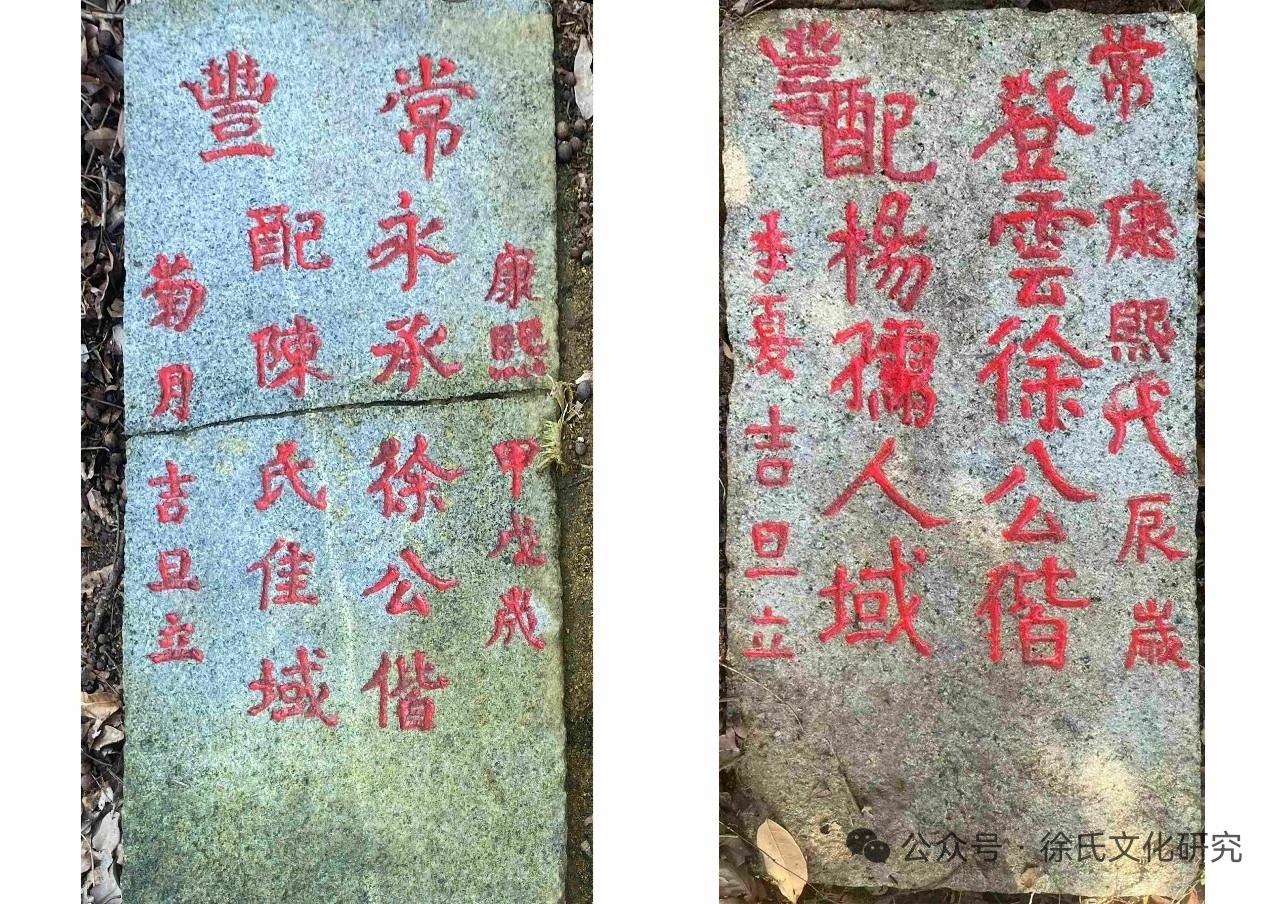 常豐
康熙甲戌歲
永承徐公偕
配陳氏佳域
菊月吉旦立
常豐
康熙戊辰歲
登雲徐公偕
配楊孺人域
季夏吉旦立
公众号·徐氏文化研究